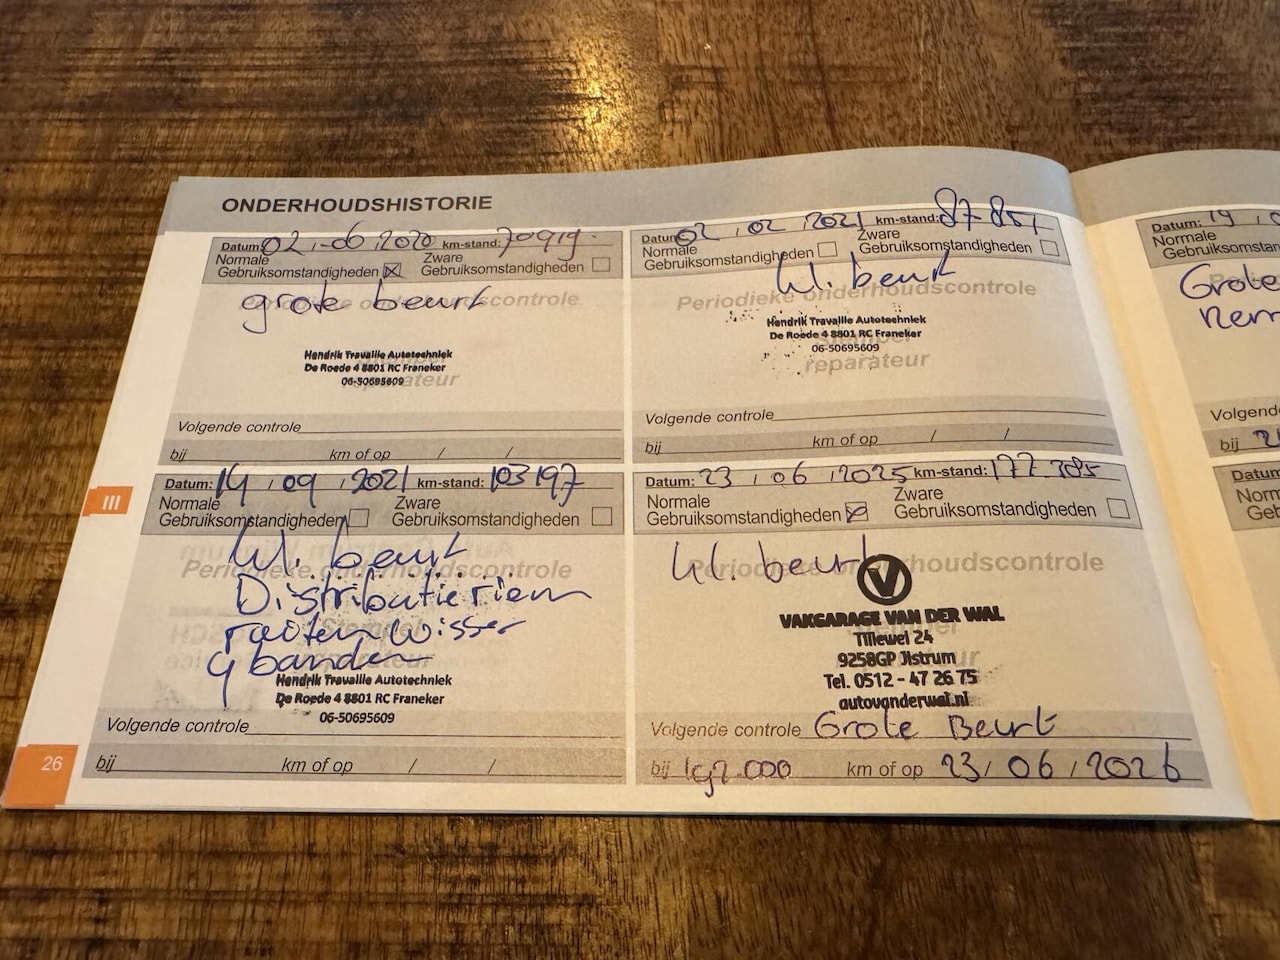 ONDERHOUDSHISTORIE
Datum: 02 / 06 / 2020 km-stand: 70919
Normale Gebruiksomstandigheden
Zware Gebruiksomstandigheden
grote beurt
Periodieke onderhoudscontrole
Hendrik Travaille Autotechniek
De Roede 4 8801 RC Franeker
06-50695609
Volgende controle
bij km of op / /
Datum: 02 / 02 / 2021 km-stand: 87 851
Normale Gebruiksomstandigheden
Zware Gebruiksomstandigheden
kl. beurt
Periodieke onderhoudscontrole
Hendrik Travaille Autotechniek
De Roede 4 8801 RC Franeker
06-50695609
Stempel
reparateur
Volgende controle
bij km of op / /
III
Datum: 14 / 09 / 2021 km-stand: 103197
Normale Gebruiksomstandigheden
Zware Gebruiksomstandigheden
kl. beurt
Periodieke onderhoudscontrole
Distributieriem
ruitenwisser
4 banden
Hendrik Travaille Autotechniek
De Roede 4 8801 RC Franeker
06-50695609
Volgende controle
bij km of op / /
Datum: 23 / 06 / 2025 km-stand: 177 385
Normale Gebruiksomstandigheden
Zware Gebruiksomstandigheden
kl. beurt
Periodieke onderhoudscontrole
V
VAKGARAGE VAN DER WAL
Tillewei 24
9258GP Jistrum
Tel. 0512 - 47 26 75
autovanderwal.nl
Volgende controle Grote Beurt
bij 192.000 km of op 23 / 06 / 2026
26
Datum: 19
Normale
Gebruiksomstan
Grote
Volgend
bij
Datum